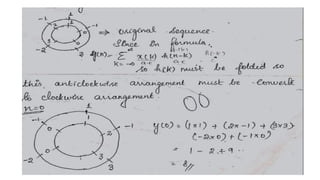 ⇒ original sequence.
Since in formula,
y(n) = Σ x(k) h(n-k)
k=-∞
so h(k) must be folded so
this anticlockwise arrangement must be convert
to clockwise arrangement
n=0
y(0) = (1×1) + (2×-1) + (3×3)
(-2×0) + (-1×0)
= 1 - 2 + 9
= 8//